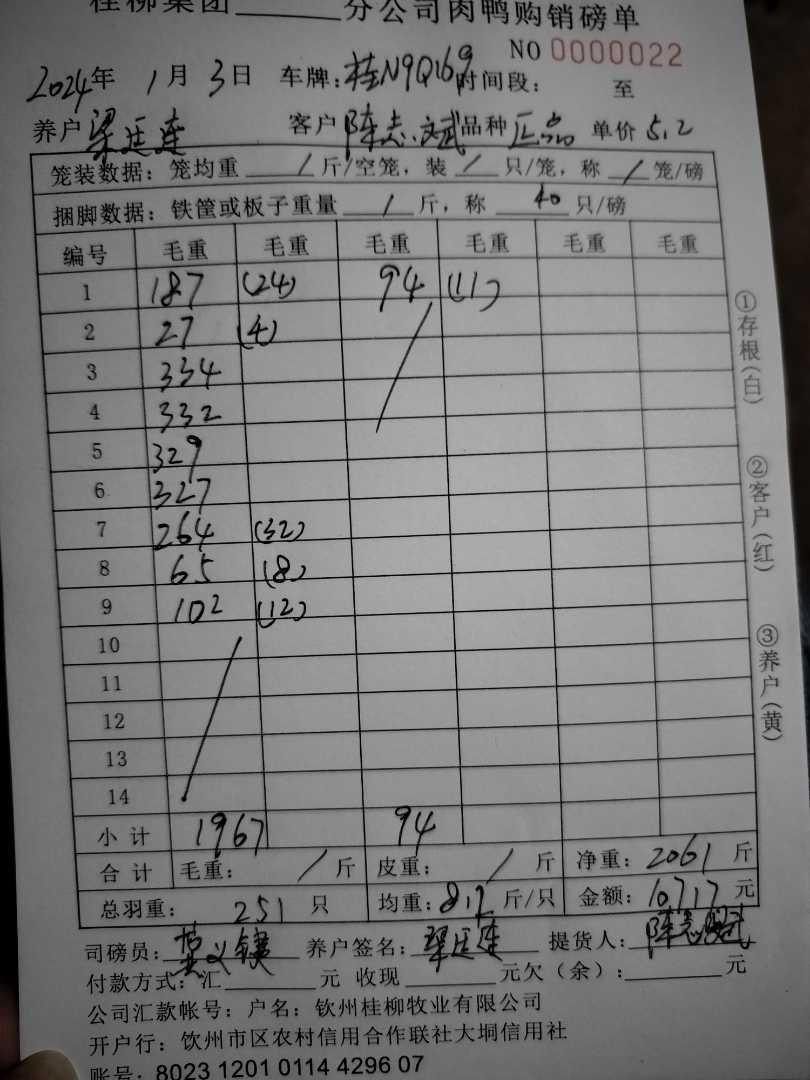 桂柳集团______分公司肉鸭购销磅单
NO 0000022
2024年 1月 3日 车牌:桂N9Q169 时间段: 至
养户 梁廷连 客户 陈志斌 品种 正品 单价 5.2
笼装数据:笼均重 / 斤/空笼,装 / 只/笼,称 / 笼/磅
捆脚数据:铁筐或板子重量 / 斤,称 40 只/磅
编号 毛重 毛重 毛重 毛重 毛重 毛重
1 187 (24) 94 (11)
2 27 (4)
3 334
4 332
5 329
6 327
7 264 (32)
8 65 (8)
9 102 (12)
10
11
12
13
14
小计 1967 94
合计 毛重: / 斤 皮重: / 斤 净重: 2061 斤
总羽重: 251 只 均重: 8.2 斤/只 金额: 10717 元
司磅员: 养户签名: 梁廷连 提货人: 陈志斌
付款方式:汇______元 收现______元欠(余):______元
公司汇款帐号:户名:钦州桂柳牧业有限公司
开户行:钦州市区农村信用合作联社大垌信用社
账号:8023 1201 0114 4296 07
①存根(白)
②客户(红)
③养户(黄)